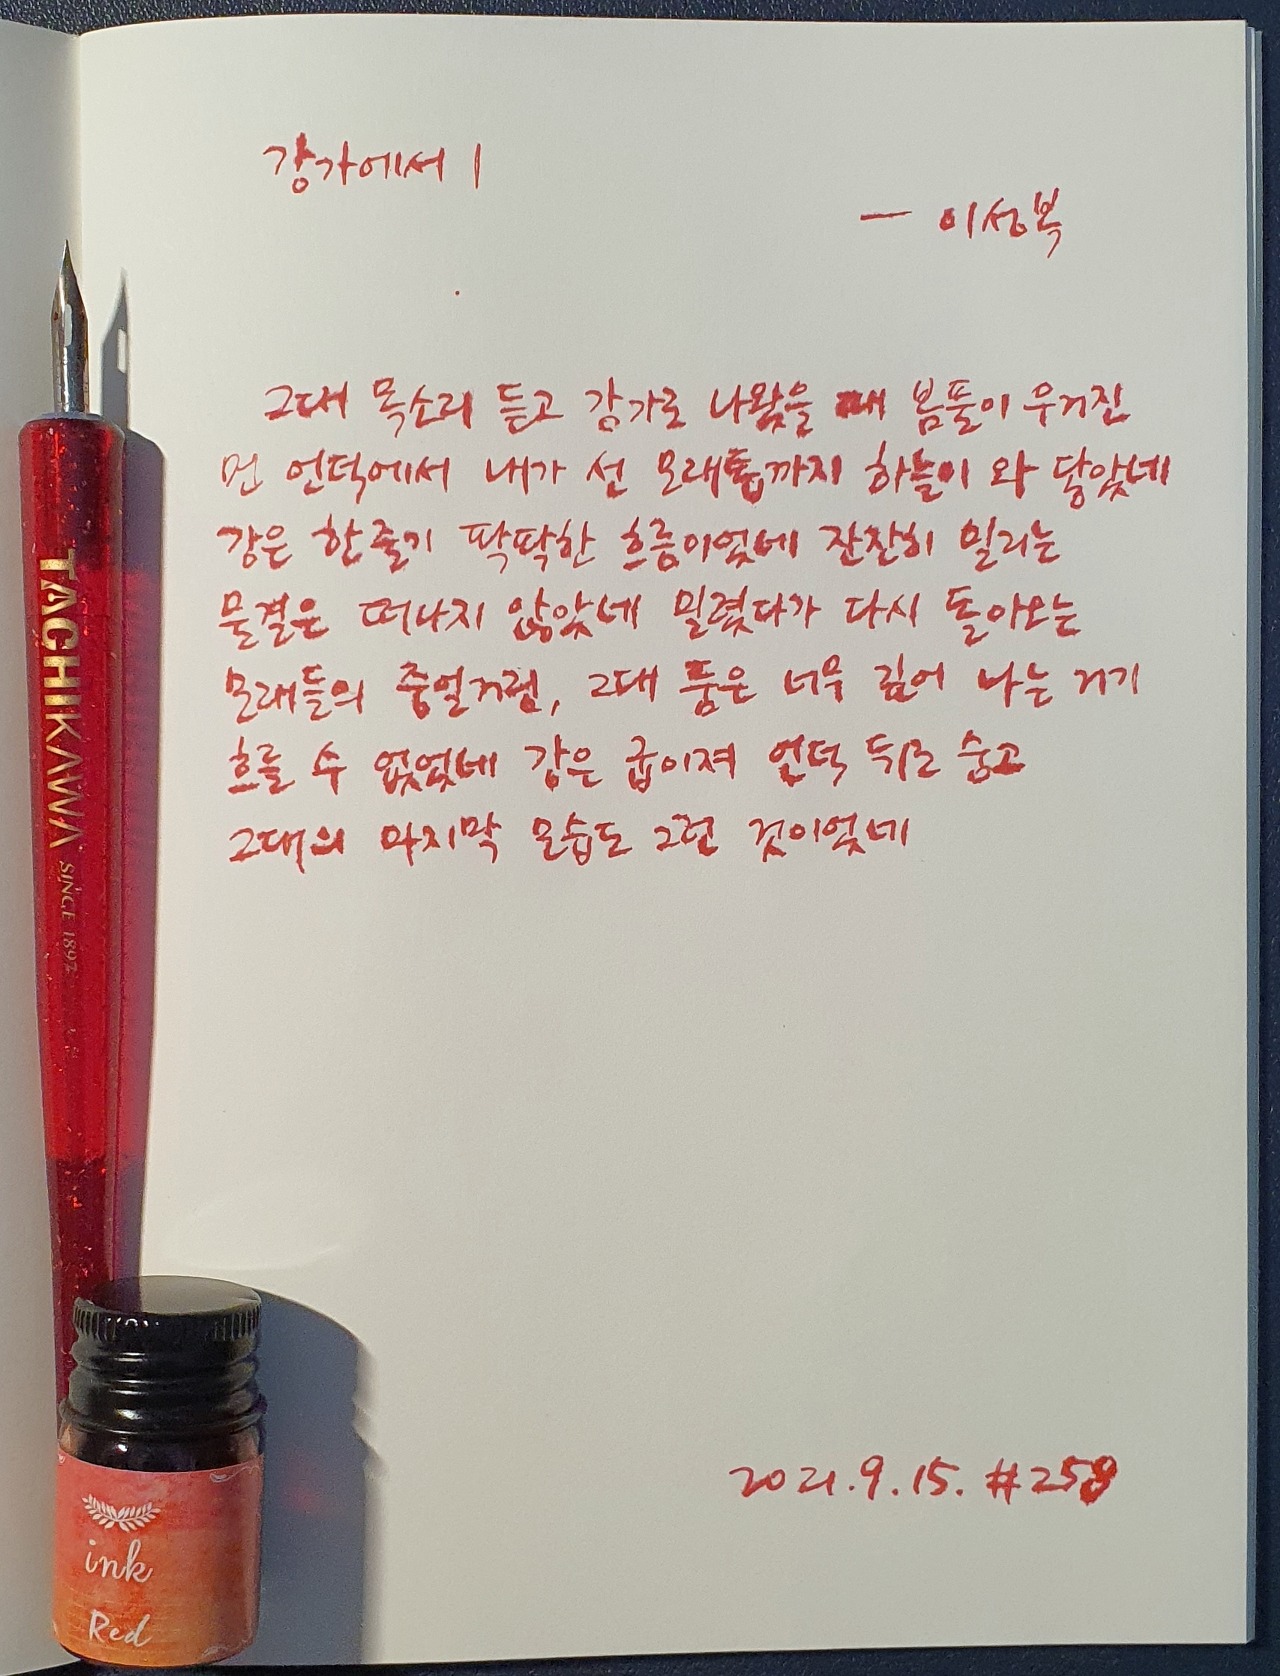 강가에서 1
— 이성복
그대 목소리 듣고 강가로 나왔을 때 봄풀이 우거진
먼 언덕에서 내가 선 모래톱까지 하늘이 와 닿았네
강은 한 줄기 딱딱한 흐름이었네 잔잔히 밀리는
물결은 떠나지 않았네 밀렸다가 다시 돌아오는
모래들의 중얼거림, 그대 품은 너무 깊어 나는 거기
흐를 수 없었네 강은 굽이져 언덕 뒤로 숨고
그대의 마지막 모습도 그런 것이었네
2021.9.15. #258
TACHIKAWA SINCE 1897
ink
Red